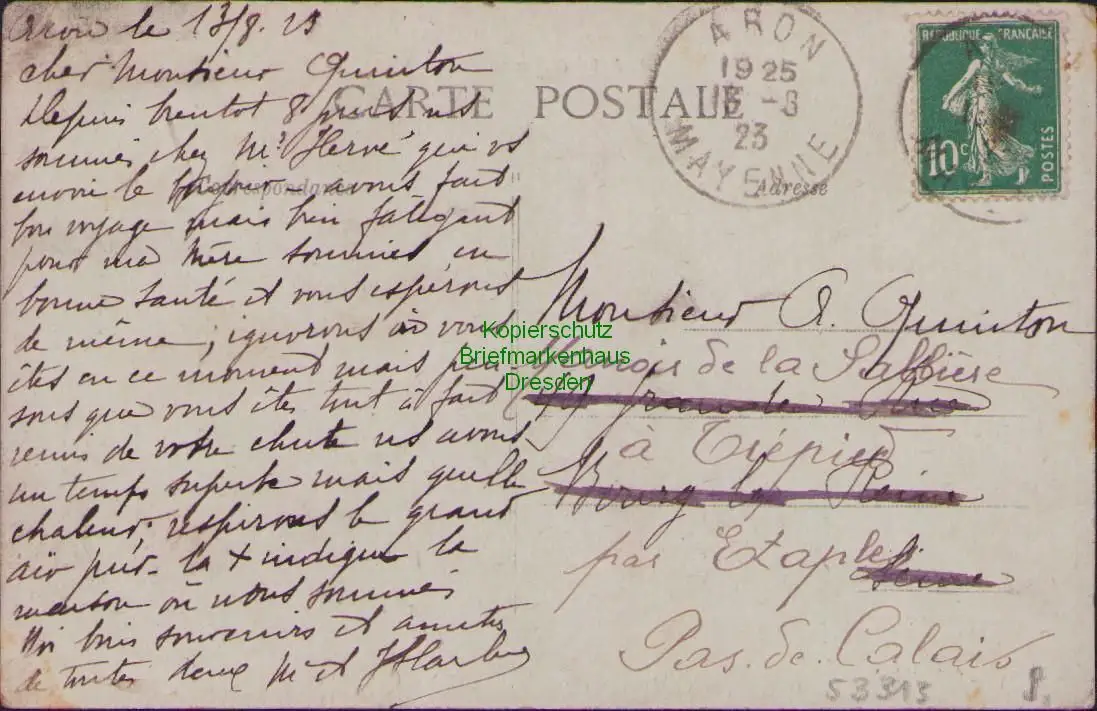 Aron le 13/8. 23
cher Monsieur Quinton
Depuis bientot 8 jours ns
sommes chez Mr Hervé qui vs
envoi le bonjour avons fait
bon voyage mais bien fatigant
pour ma mère sommes en
bonne santé et vous espérons
de même, ignorons où vous
êtes en ce moment mais pen
sons que vous êtes tout à fait
remis de votre chute ns avons
un temps superbe mais quelle
chaleur, respirons le grand
air pur. la + indique la
maison où nous sommes
bons souvenirs et amitiés
de toutes deux M et
CARTE POSTALE
Correspondance
Adresse
ARON
1925
13 - 8
23
MAYENNE
REPUBLIQUE FRANÇAISE
10c
POSTES
Monsieur A. Quinton
de la
Grande Rue
à Trépied
Bourg la Reine
par Etaples
Seine
Pas. de. Calais
53313
Kopierschutz
Briefmarkenhaus
Dresden